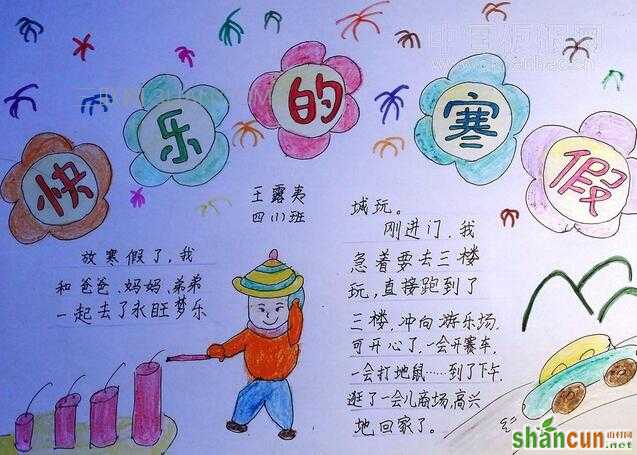 快乐的寒假
王露夷
四(1)班
放寒假了，我
和爸爸、妈妈、弟弟
一起去了永旺梦乐
城玩。
刚进门，我
急着要去三楼
玩，直接跑到了
三楼，冲向游乐场，
可开心了，一会开赛车，
一会打地鼠……到了下午，
逛了一会儿商场，高兴
地回家了。
shancun
山村网
.net